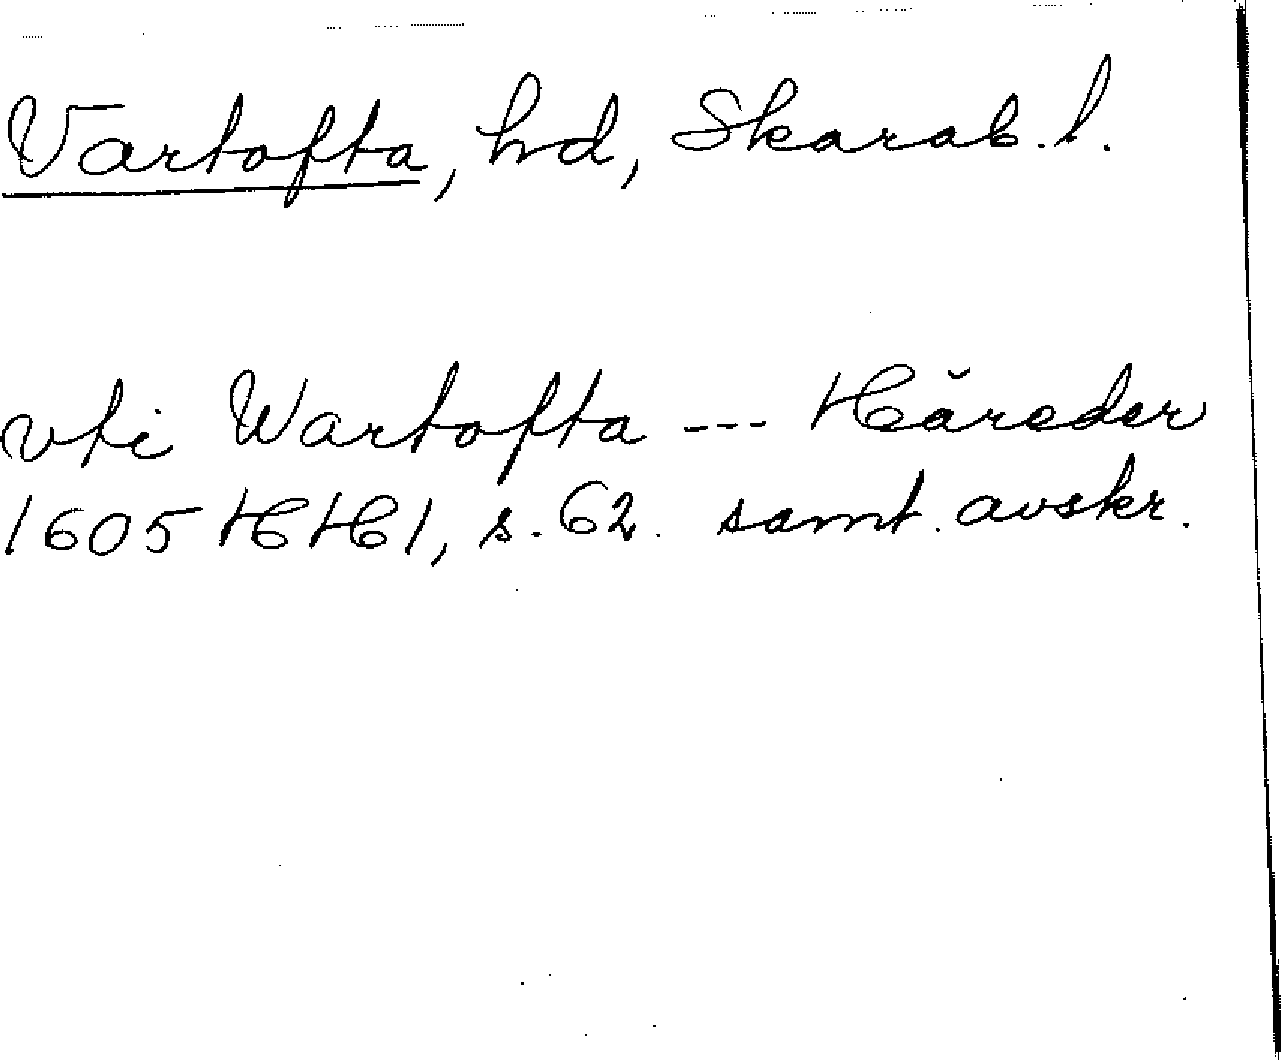 Vartofta, hd, Skarab. l.
vti Wartofta --- Håreder
1605 HH1, s. 62. samt. avskr.